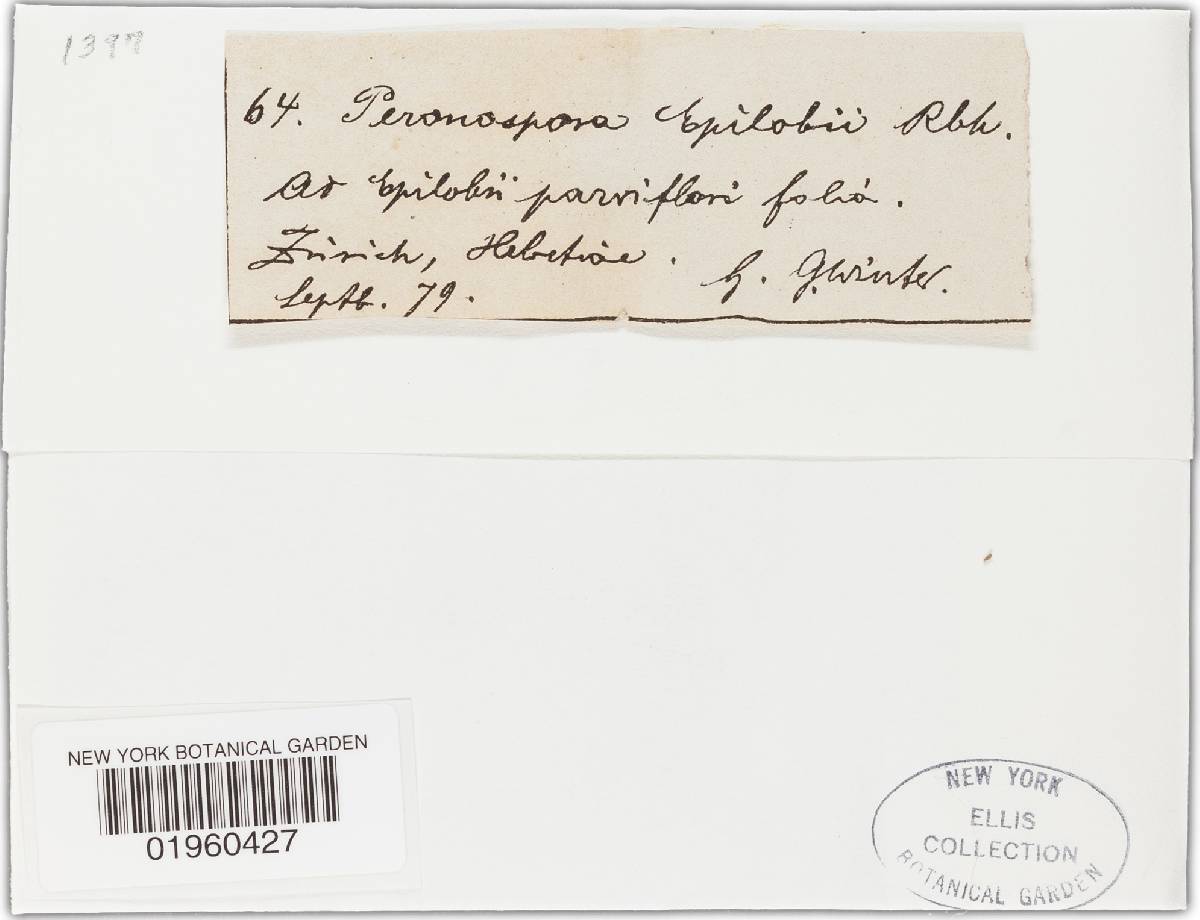 1397
64. Peronospora Epilobii Rbh.
Ad Epilobii parviflori folia.
Zürich, Helvetiae.
Septb. 79.
G. Winter.
NEW YORK BOTANICAL GARDEN
01960427
NEW YORK
ELLIS
COLLECTION
BOTANICAL GARDEN